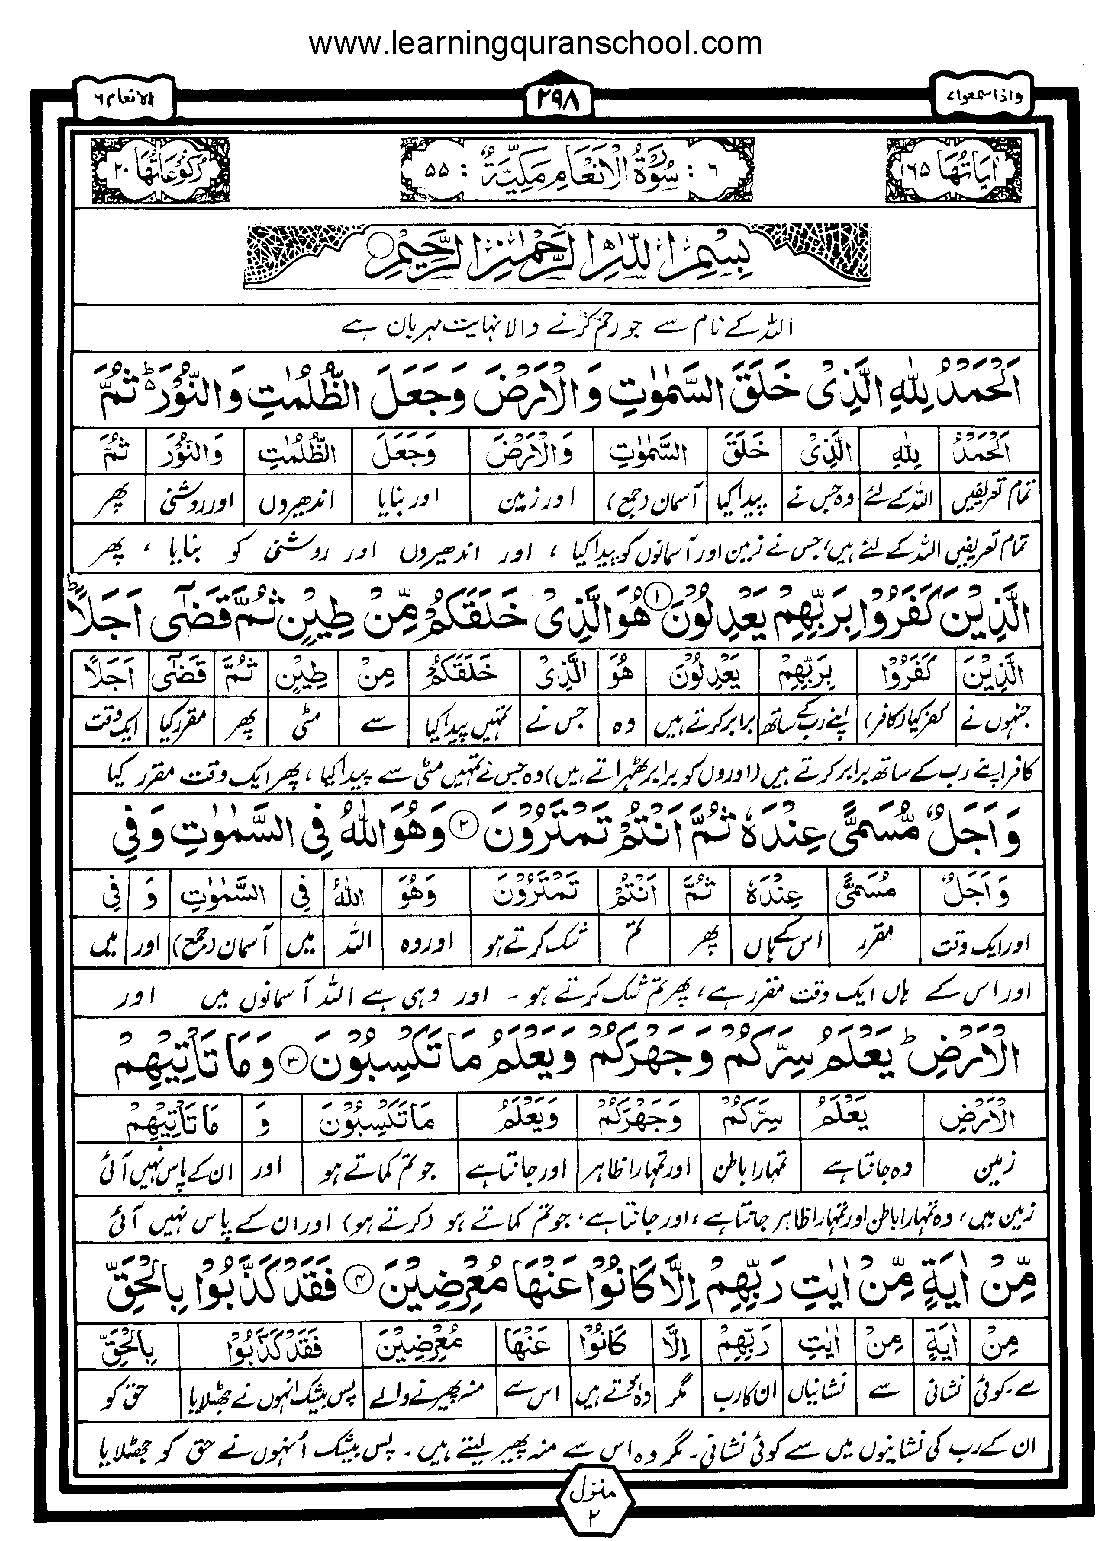 www.learningquranschool.com
واذاسمعوا۷
۲۹۸
الانعام ۶
اٰيَاتُهَا ۱۶۵
۶ : سُوْرَةُ الْاَنْعَامِ مَكِّيَّةٌ : ۵۵
رُكُوْعَاتُهَا ۲۰
بِسْمِ اللّٰهِ الرَّحْمٰنِ الرَّحِيْمِ
اللہ کے نام سے جو رحم کرنے والا نہایت مہربان ہے
اَلْحَمْدُ لِلّٰهِ الَّذِىْ خَلَقَ السَّمٰوٰتِ وَالْاَرْضَ وَجَعَلَ الظُّلُمٰتِ وَالنُّوْرَ ؕ ثُمَّ
اَلْحَمْدُ لِلّٰهِ الَّذِىْ خَلَقَ السَّمٰوٰتِ وَالْاَرْضَ وَجَعَلَ الظُّلُمٰتِ وَالنُّوْرَ ثُمَّ
تمام تعریفیں اللہ کے لئے وہ جس نے پیدا کیا آسمان (جمع) اور زمین اور بنایا اندھیروں اور روشنی پھر
تمام تعریفیں اللہ کے لئے ہیں جس نے زمین اور آسمانوں کو پیدا کیا ، اور اندھیروں اور روشنی کو بنایا ، پھر
الَّذِيْنَ كَفَرُوْا بِرَبِّهِمْ يَعْدِلُوْنَ ۱ هُوَ الَّذِىْ خَلَقَكُمْ مِّنْ طِيْنٍ ثُمَّ قَضٰٓى اَجَلًا ؕ
الَّذِيْنَ كَفَرُوْا بِرَبِّهِمْ يَعْدِلُوْنَ هُوَ الَّذِىْ خَلَقَكُمْ مِنْ طِيْنٍ ثُمَّ قَضٰٓى اَجَلًا
جنہوں نے کفر کیا (کافر) اپنے رب کے ساتھ برابر کرتے ہیں وہ جس نے تمہیں پیدا کیا سے مٹی پھر مقرر کیا ایک وقت
کافر اپنے رب کے ساتھ برابر کرتے ہیں (اوروں کو برابر ٹھہراتے ہیں) وہ جس نے تمہیں مٹی سے پیدا کیا ، پھر ایک وقت مقرر کیا
وَاَجَلٌ مُّسَمًّى عِنْدَهٗ ثُمَّ اَنْتُمْ تَمْتَرُوْنَ ۲ وَهُوَ اللّٰهُ فِى السَّمٰوٰتِ وَفِى
وَاَجَلٌ مُسَمًّى عِنْدَهٗ ثُمَّ اَنْتُمْ تَمْتَرُوْنَ وَهُوَ اللّٰهُ فِى السَّمٰوٰتِ وَ فِى
اور ایک وقت مقرر اس کے ہاں پھر تم شک کرتے ہو اور وہ اللہ میں آسمان (جمع) اور میں
اور اس کے ہاں ایک وقت مقرر ہے ، پھر تم شک کرتے ہو - اور وہی ہے اللہ آسمانوں میں اور
الْاَرْضِ ؕ يَعْلَمُ سِرَّكُمْ وَجَهْرَكُمْ وَيَعْلَمُ مَا تَكْسِبُوْنَ ۳ وَمَا تَاْتِيْهِمْ
الْاَرْضِ يَعْلَمُ سِرَّكُمْ وَجَهْرَكُمْ وَيَعْلَمُ مَا تَكْسِبُوْنَ وَ مَا تَاْتِيْهِمْ
زمین وہ جانتا ہے تمہارا باطن اور تمہارا ظاہر اور جانتا ہے جو تم کماتے ہو اور ان کے پاس نہیں آئی
زمین میں ، وہ تمہارا باطن اور تمہارا ظاہر جانتا ہے ، اور جانتا ہے ، جو تم کماتے ہو (کرتے ہو) اور ان کے پاس نہیں آئی
مِّنْ اٰيَةٍ مِّنْ اٰيٰتِ رَبِّهِمْ اِلَّا كَانُوْا عَنْهَا مُعْرِضِيْنَ ۴ فَقَدْ كَذَّبُوْا بِالْحَقِّ
مِنْ اٰيَةٍ مِنْ اٰيٰتِ رَبِّهِمْ اِلَّا كَانُوْا عَنْهَا مُعْرِضِيْنَ فَقَدْ كَذَّبُوْا بِالْحَقِّ
سے ۔ کوئی نشانی سے نشانیاں ان کا رب مگر وہ ہوتے ہیں اس سے منہ پھیرنے والے پس بیشک انہوں نے جھٹلایا حق کو
ان کے رب کی نشانیوں میں سے کوئی نشانی ۔ مگر وہ اس سے منہ پھیر لیتے ہیں ۔ پس بیشک انہوں نے حق کو جھٹلایا
منزل
۲